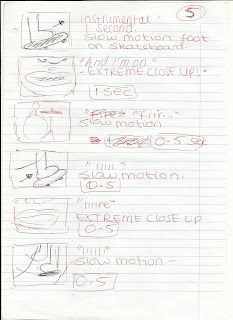 5
instrumental
1 second.
Slow motion foot
on skateboard.
"And I'm on"
- EXTREME CLOSE UP!
1 sec
"fiir..."
Slow motion
0.5 sec
"iiiii"
Slow motion.
0.5
"iiiire"
EXTREME CLOSE UP
0.5
"iiiii"
Slow motion -
0.5